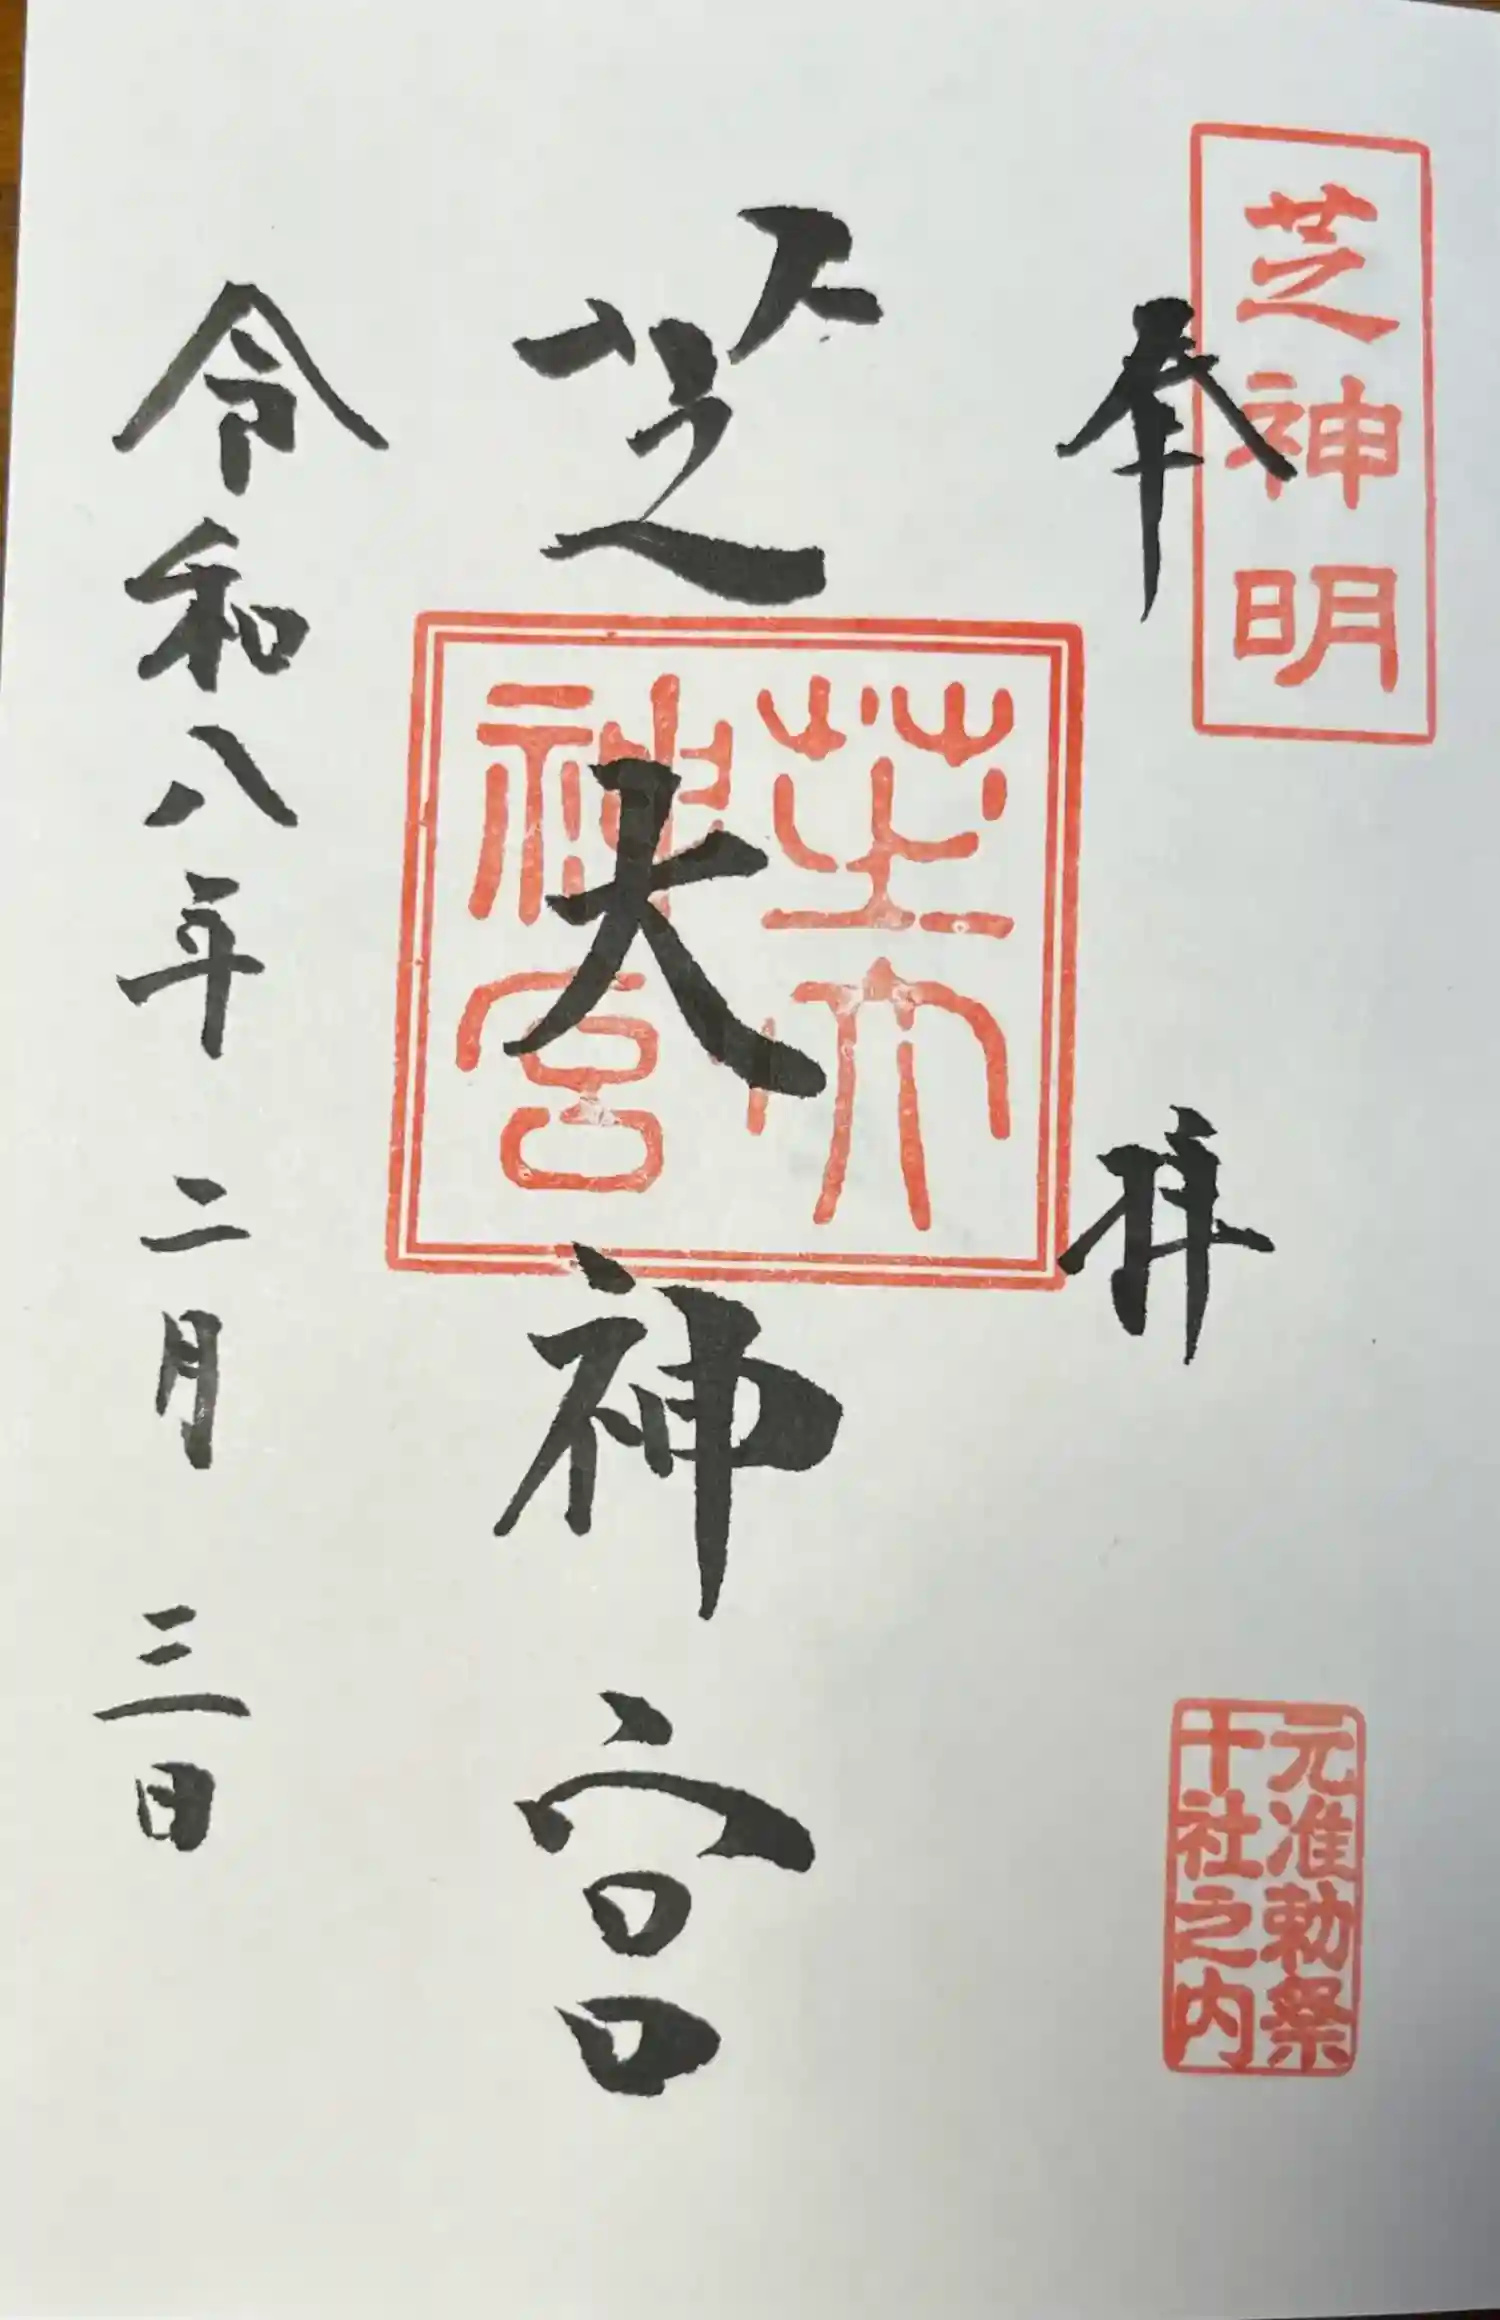 芝神明
奉拝
元准勅祭
十社之内
芝大神宮
芝大
神宮
令和八年二月三日